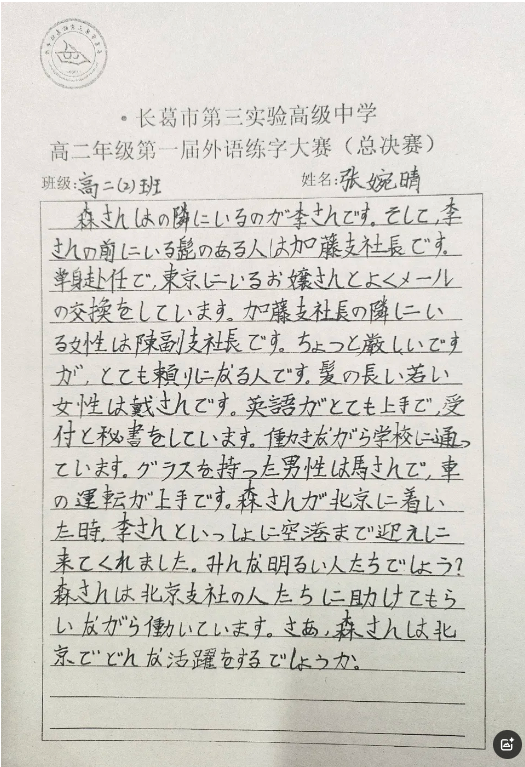 ·长葛市第三实验高级中学
高二年级第一届外语练字大赛（总决赛）
班级:高二(2)班 姓名:张婉晴
森さんはの隣にいるのが李さんです。そして,李
さんの前にいる髭のある人は加藤支社長です。
単身赴任で,東京にいるお嬢さんとよくメール
の交換をしています。加藤支社長の隣にい
る女性は陳副支社長です。ちょっと厳しいです
が,とても頼りになる人です。髪の長い若い
女性は戴さんです。英語がとても上手で,受
付と秘書をしています。働きながら学校に通っ
ています。グラスを持った男性は馬さんで,車
の運転が上手です。森さんが北京に着い
た時,李さんといっしょに空港まで迎えに
来てくれました。みんな明るい人たちでしよう?
森さんは北京支社の人たちに助けてもら
いながら働いています。さあ,森さんは北
京でどんな活躍をするでしょうか。